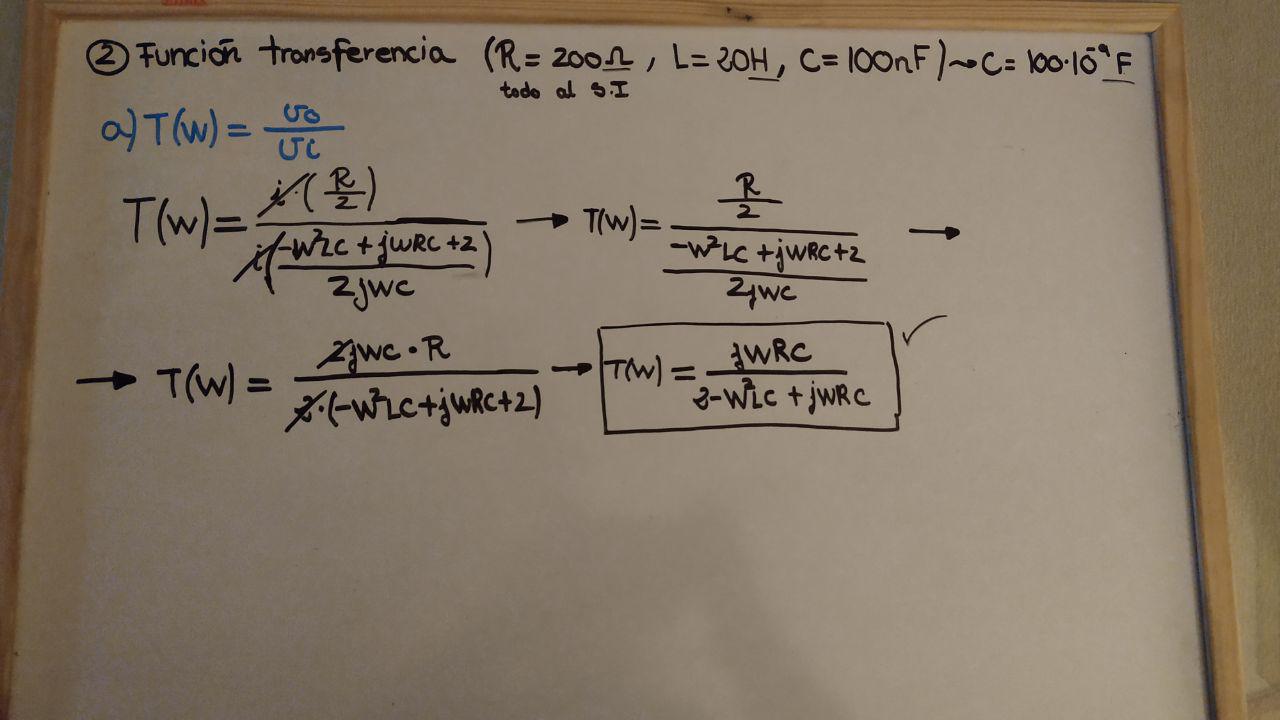 ② Función transferencia (R = 200Ω, L = 20H, C = 100nF) ~ C = 100·10⁻⁹ F
todo al S.I
a) T(w) = vo / vi
T(w) = i·(R/2) / i(-w²LC + jwRC + 2 / 2jwc) → T(w) = R/2 / (-w²LC + jwRC + 2 / 2jwc) →
→ T(w) = 2jwc · R / 2·(-w²LC + jwRC + 2) → T(w) = jwRC / 2-w²LC + jwRC ✓